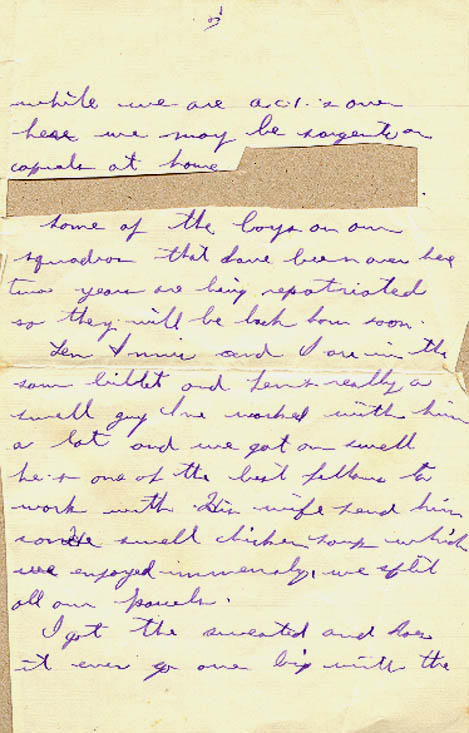 3
while we are a.c.1.s over
here we may be sargents or
caprals at home
Some of the boys on our
squadron that have been over here
two years are being repatriated
so they will be back hom soon.
Len and I are in the
same billet and Len's really a
swell guy I've worked with him
a lot and we get on swell
he's one of the best fellows to
work with. His wife send him
some swell chicken soup which
we enjoyed immensly, we split
all our parcels.
I got the sweated and does
it ever go over big with the